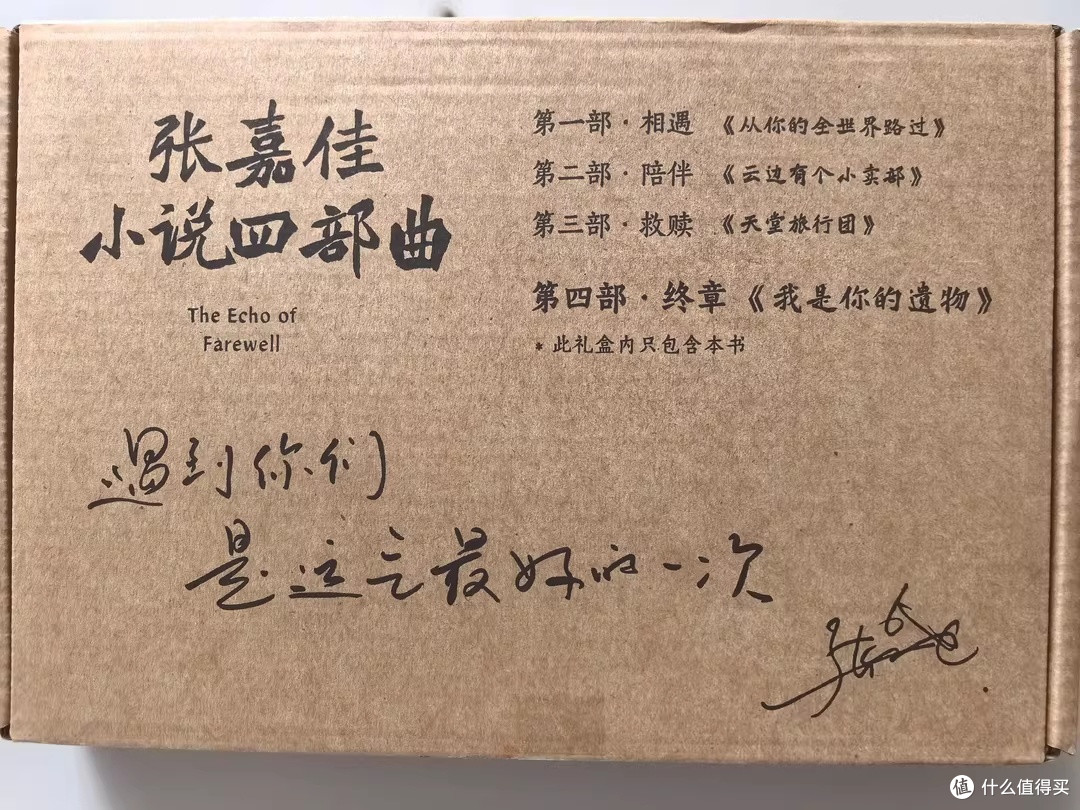 张嘉佳
小说四部曲
The Echo of
Farewell
第一部·相遇 《从你的全世界路过》
第二部·陪伴 《云边有个小卖部》
第三部·救赎 《天堂旅行团》
第四部·终章《我是你的遗物》
* 此礼盒内只包含本书
遇到你们
是这辈最好的一次
值 什么值得买